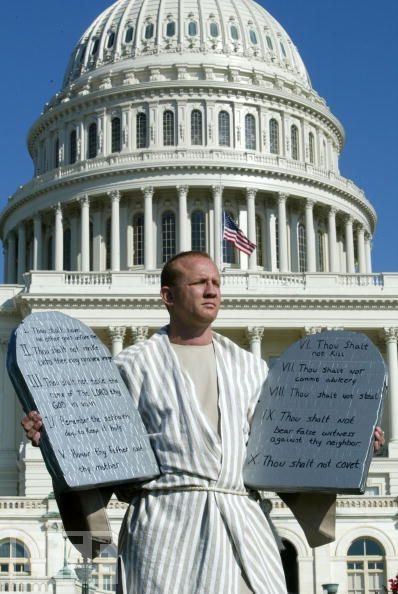 I. Thou shalt have no
other god before me
II. Thou shalt not make
unto thee any graven image
III. Thou shalt not take the
name of The LORD thy
GOD in vain
IV. Remember the sabbath
day, to keep it holy
V. Honour thy father and
thy mother
VI. Thou Shalt
not Kill
VII. Thou Shalt not
commit adultery
VIII. Thou shalt not steal
IX. Thou shalt not
bear false witness
against thy neighbor.
X. Thou shalt not covet